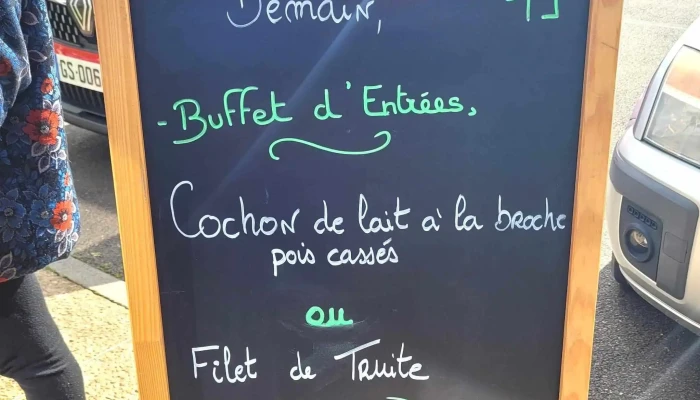 Demain,
- Buffet d'Entrées,
Cochon de lait à la broche
pois cassés
ou
Filet de Truite
GS-006